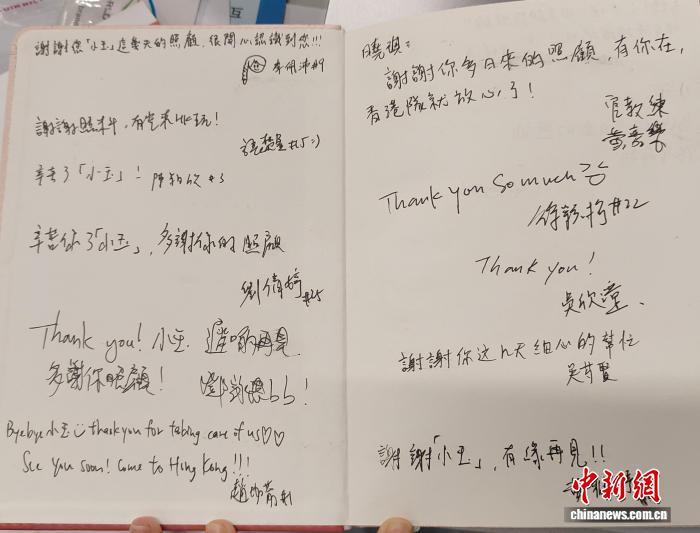 謝謝您「小玉」這幾天的照顧,很開心認識到您!!!
#9
謝謝照料,有空來HK玩!
#15 :)
辛苦了「小玉」! #3
辛苦你了「小玉」,多謝你的照顧
劉倩婷 #25
Thank you! 小玉. 遲啲再見
多謝你照顧! bb!
Byebye 小玉 thank you for taking care of us♡♡
See you soon! Come to Hong Kong!!!
趙 #1
曉琪:
謝謝你多日來的照顧,有你在,
香港隊就放心了!
官教練
Thank you so much
徐 #22
Thank you!
吳欣
謝謝你这几天细心的幫忙
吳芍賢
謝謝「小玉」,有緣再見!!
中新網
chinanews.com